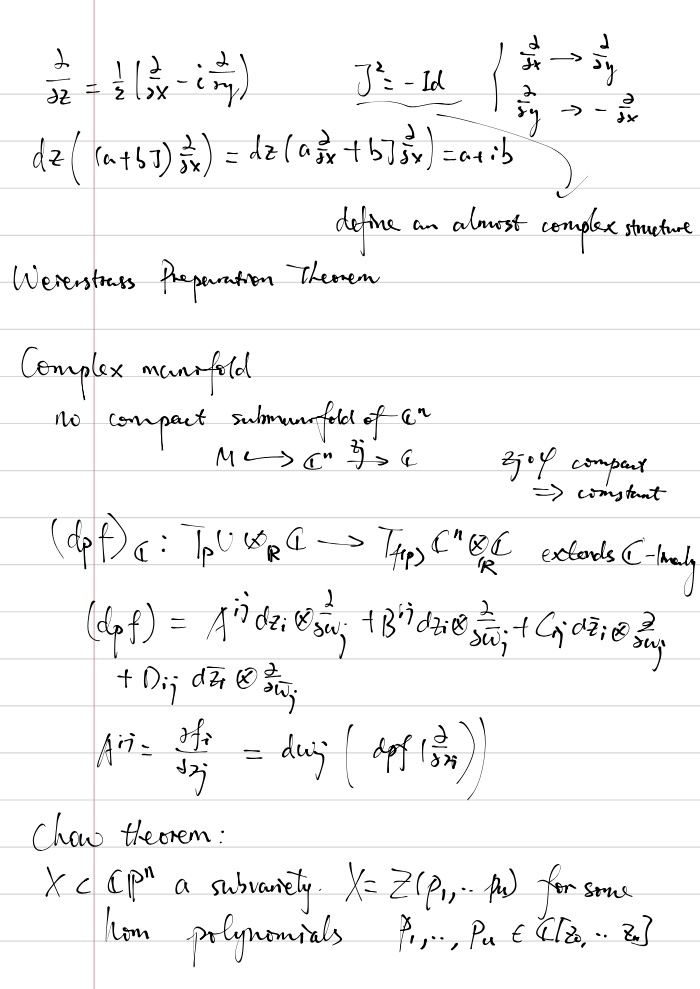 ∂/∂z = 1/2 (∂/∂x − i ∂/∂y)    J² = −Id    { ∂/∂x → ∂/∂y
∂/∂y → −∂/∂x
dz((a+bJ)∂/∂x) = dz(a∂/∂x + bJ∂/∂x) = a+ib
define an almost complex structure
Weierstrass Preparation Theorem
Complex manifold
no compact submanifold of ℂⁿ
M ↪ ℂⁿ →^{zj} ℂ    zj∘φ compact
⇒ constant
(dpf)_ℂ : TpU ⊗_ℝ ℂ → T_{f(p)}ℂⁿ ⊗_ℝ ℂ  extends ℂ-linearly
(dpf) = A^{ij} dz_i ⊗ ∂/∂w_j + B^{ij} dz_i ⊗ ∂/∂w̄_j + C_{ij} dz̄_i ⊗ ∂/∂w_j
+ D_{ij} dz̄_i ⊗ ∂/∂w̄_j
A^{ij} = ∂f_i/∂z_j = dw_j (dpf(∂/∂z_i))
Chow theorem:
X ⊂ ℂPⁿ a subvariety. X = Z(p₁,.. p_k) for some
hom polynomials  P₁,.., P_k ∈ ℂ[z₀, .. z_n]